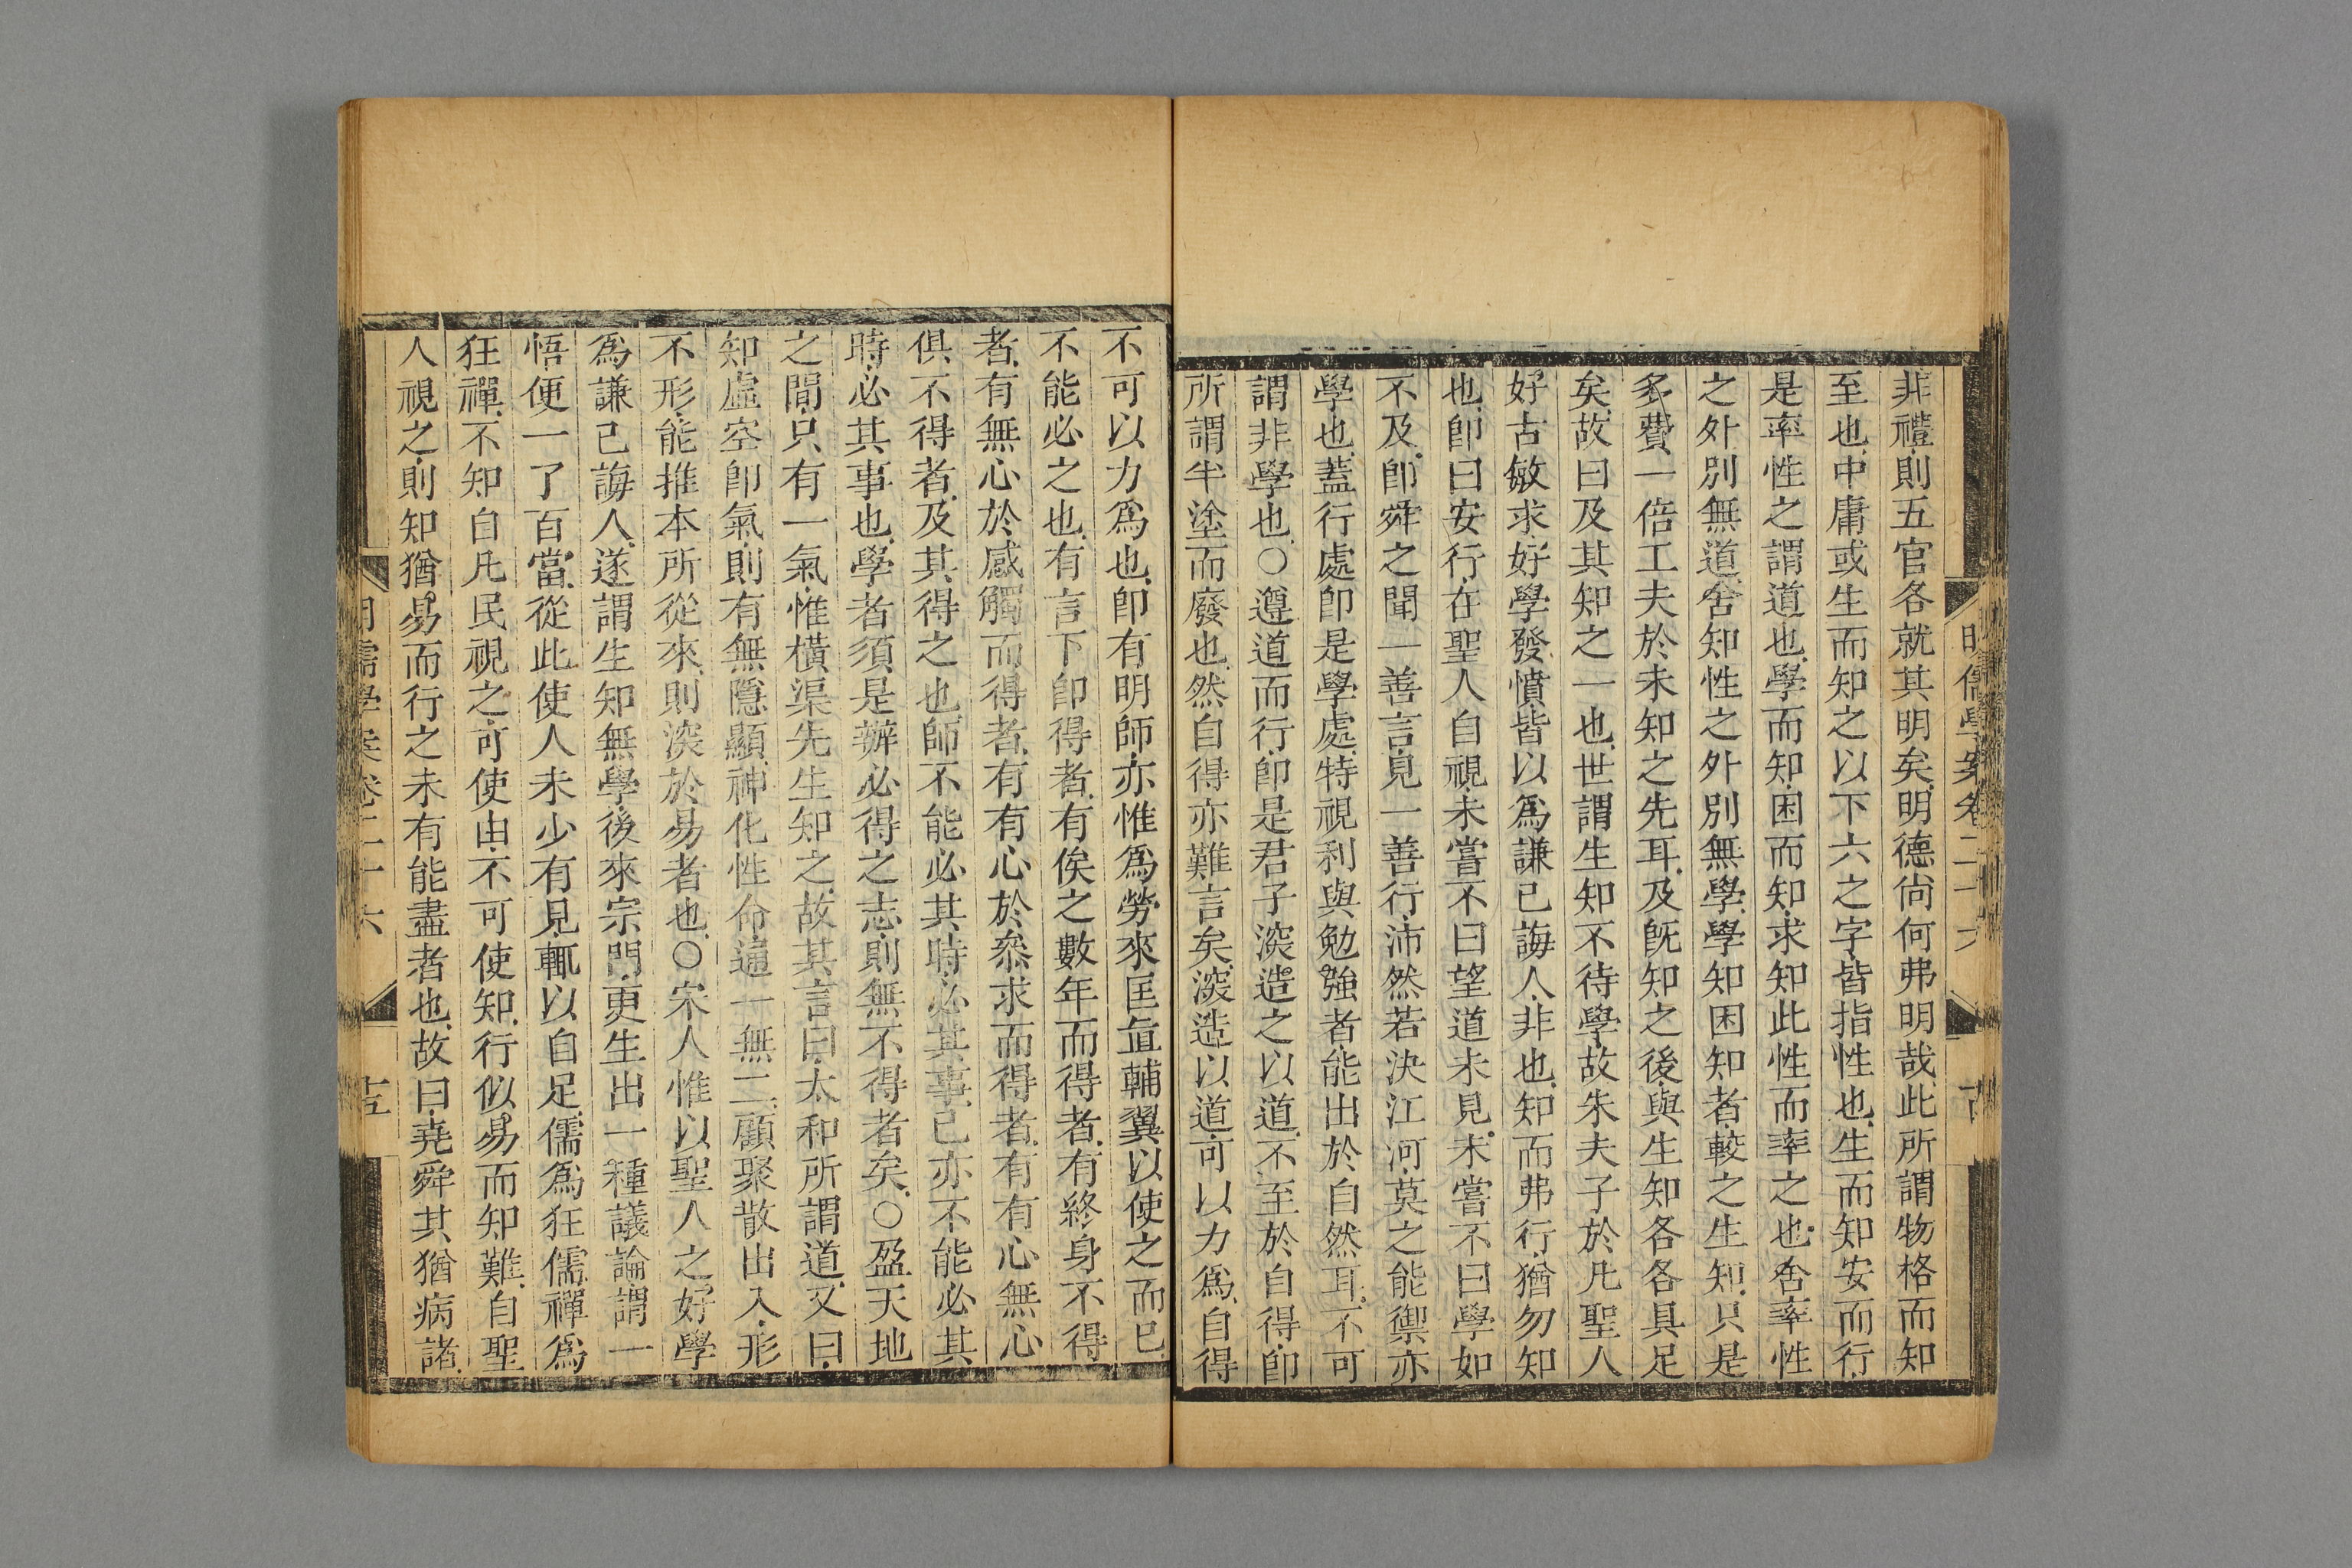 明儒學案卷二十六
非禮則五官各就其明矣明德尙何弗明哉此所謂物格而知
至也中庸或生而知之以下六之字皆指性也生而知安而行
是率性之謂道也學而知困而知求知此性而率之也舍率性
之外別無道舍知性之外別無學學知困知者較之生知只是
多費一倍工夫於未知之先耳及旣知之後與生知各各具足
矣故曰及其知之一也世謂生知不待學故朱夫子於凡聖人
好古敏求好學發憤皆以爲謙己誨人非也知而弗行猶勿知
也卽曰安行在聖人自視未嘗不曰望道未見未嘗不曰學如
不及卽舜之聞一善言見一善行沛然若決江河莫之能禦亦
學也蓋行處卽是學處特視利與勉強者能出於自然耳不可
謂非學也○遵道而行卽是君子深造之以道不至於自得卽
所謂半塗而廢也然自得亦難言矣深造以道可以力爲自得
不可以力爲也卽有明師亦惟爲勞來匡直輔翼以使之而已
不能必之也有言下卽得者有俟之數年而得者有終身不得
者有無心於感觸而得者有有心於叅求而得者有有心無心
俱不得者及其得之也師不能必其時必其事已亦不能必其
時必其事也學者須是辦必得之志則無不得者矣○盈天地
之間只有一氣惟橫渠先生知之故其言曰太和所謂道又曰
知虛空卽氣則有無隱顯神化性命通一無二顧聚散出入形
不形能推本所從來則深於易者也○宋人惟以聖人之好學
爲謙己誨人遂謂生知無學後來宗門更生出一種議論謂一
悟便一了百當從此使人未少有見輒以自足儒爲狂儒禪爲
狂禪不知自凡民視之可使由不可使知行似易而知難自聖
人視之則知猶易而行之未有能盡者也故曰堯舜其猶病諸
明儒學案卷二十六